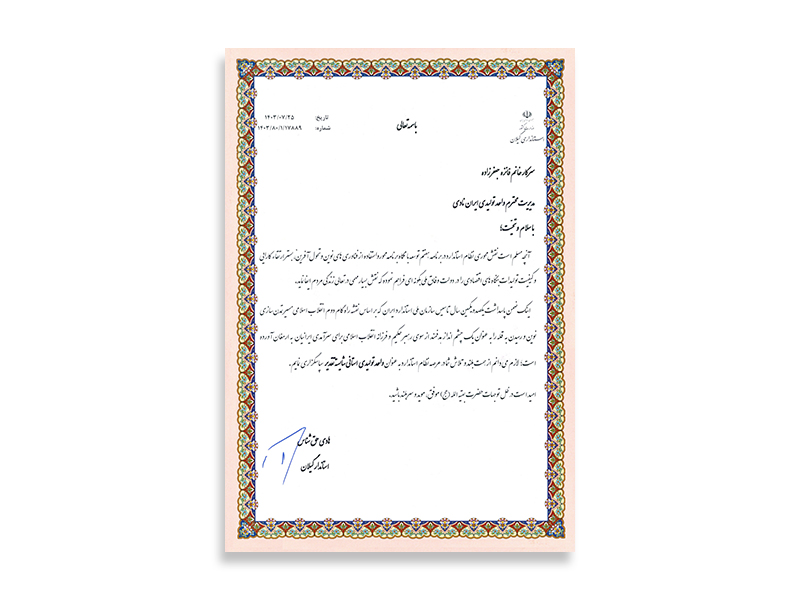 باسمه تعالی
تاریخ: ۱۴۰۳/۰۷/۲۵
شماره: ۱۴۰۳/۸۰/۱/۱۷۸۸۹
استانداری گیلان
سرکار خانم فائزه جعفرزاده
مدیریت محترم واحد تولیدی ایران نادی
با سلام و تحیت؛
آنچه مسلم است نقش محوری نظام استاندارد در برنامه هفتم توسعه با نگاه برنامه محور و استفاده از فناوری های نوین و تحول آفرین، بستر ارتقاء کارایی
و کیفیت تولیدات بنگاه های اقتصادی را در دولت وفاق ملی بگونه ای فراهم نموده که نقش بسیار مهمی در تعالی زندگی مردم ایفا نماید.
اینک ضمن پاسداشت یکصد و یکمین سال تاسیس سازمان ملی استاندارد ایران که بر اساس نقشه راه گام دوم انقلاب اسلامی مسیر تمدن سازی
نوین و رسیدن به قله را به عنوان یک چشم انداز هدفمند از سوی رهبر حکیم و فرزانه انقلاب اسلامی برای سرآمدی ایرانیان به ارمغان آورده
است؛ لازم می دانم از همت بلند و تلاش شما در عرصه نظام استاندارد به عنوان واحد تولیدی استانی شایسته تقدیر سپاسگزاری نمایم.
امید است در ظل توجهات حضرت بقیه الله (عج) موفق، موید و سربلند باشید.
هادی حق شناس
استاندار گیلان